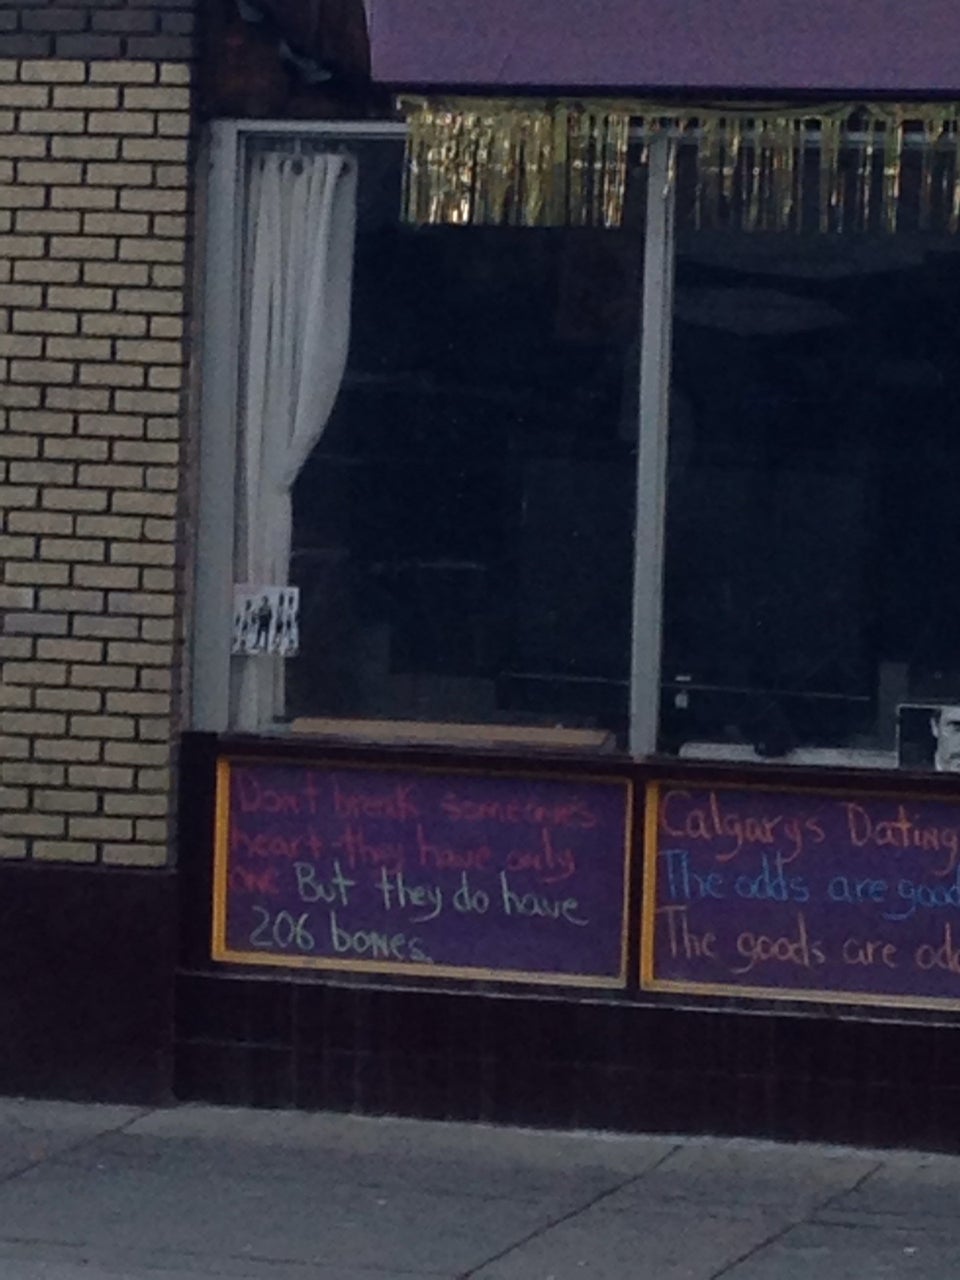 Don't break someone's
heart - they have only
one But they do have
206 bones.
Calgarys Dating
The odds are good
The goods are odd